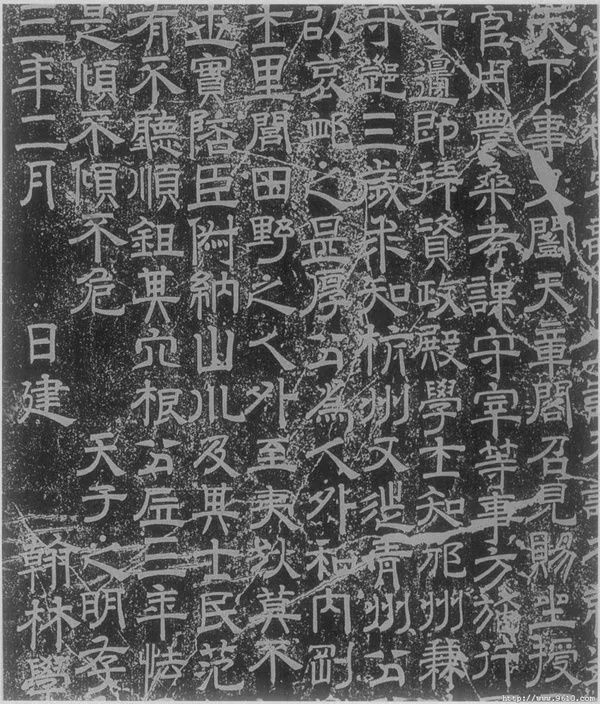 天下事又開天章閣召見賜坐授
官以農桑考課守宰等事方施行
守邊即拜資政殿學士知邠州兼
守鄧三歲求知杭州又徙青州公
所哀卹之是厚公為人外和內剛
士里閭田野之人外至夷狄莫不
世實陪臣附納山川及其士民范
有不聽順鉏其穴根公居三年怯
是傾不傾不危 天子之明存
三年二月 日建 翰林學
http://www.9610.com